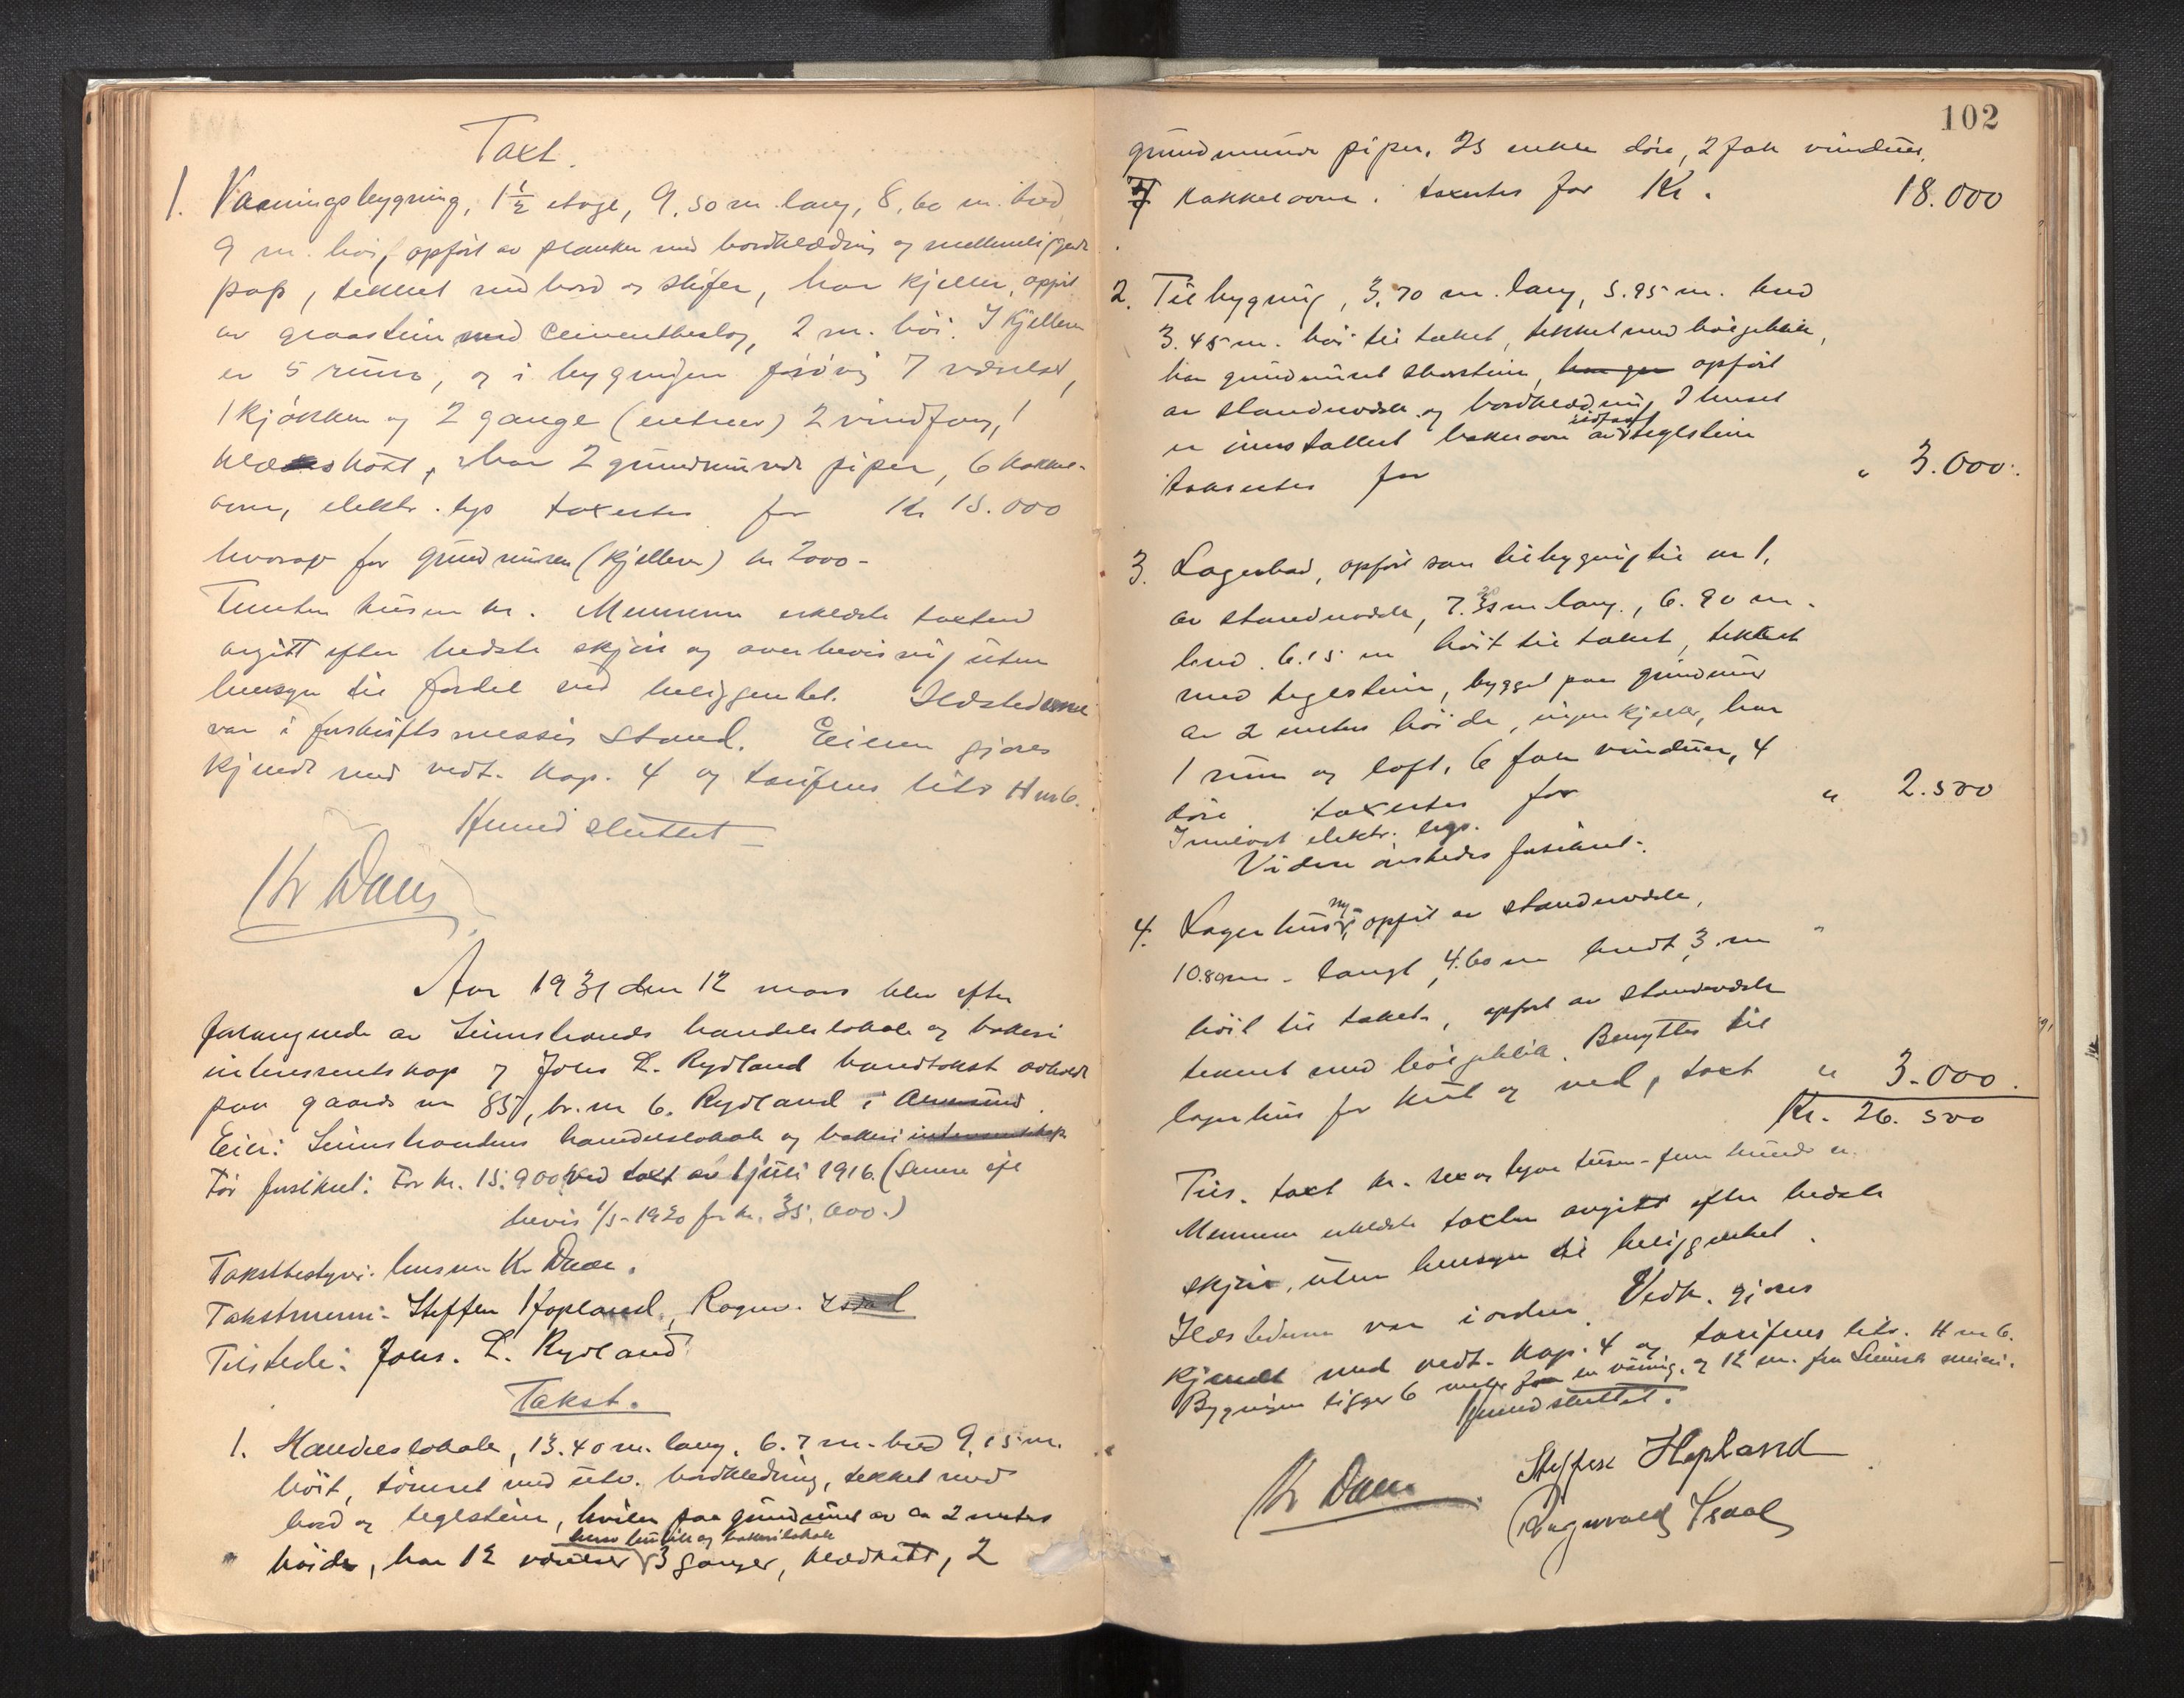 Taxt.
1. Vaaningsbygning, 1 1/2 etage, 9.50 m. lang, 8.60 m. bred
9 m. høi, opført av planker med bordklædning og mellemliggende
pap, tekket med bord og skifer, har kjeller, opført
av graastein med cementbeslag, 2 m. høi. I kjelleren
er 5 rum, og i bygningen forøvrig 7 værelser,
1 kjøkken og 2 gange (entreer) 2 vindfang, 1
klæskott, har 2 grundmurede piper, 6 kakkel-
ovner, elektr. lys taxertes for Kr 15.000
hvorav for grundmuren (kjelleren) kr 2000-
Femten tusen kr. Mennene erklærte taxten
avgitt efter bedste skjøn og overbevisning uten
hensyn til fordel ved beliggenhet. Ildstederne
var i forskriftsmessig stand. Eieren gjøres
kjendt med vedt. kap. 4 og tarifens litr H nr 6.
Hermed sluttet
Kr Daae
Aar 1931 den 12 mars blev efter
forlangende av Seimstrands handelslokale og bakeri
interessentskap v/ Johs L. Rydland brandtakst avholdt
paa gaards nr 85, br. nr 6. Rydland i Alversund.
Eier: Seimstrandens handelslokale og bakeri interessentskap
Før forsikret: For kr. 15.900 ved taxt av 1 juli 1916. (Senere eft
bevis 1/5-1920 for kr. 35.000.)
Takstbestyrer: lensm. Kr. Daae.
Takstmenn: Steffen Hopland, Ragnv. Isdal
Tilstede: Johs. L. Rydland
Takst.
1. Handelslokale, 13.40 m. lang, 6.7 m. bred 9,15 m.
høit, tømret med utv. bordklædning, tekket med
bord og teglstein, hviler paa grundmur av ca 2 meters
herav butikk og bakerilokale
høide, har 12 værelser 3 ganger, klædskott, 2
102
grundmurede piper, 25 enkle døre, 2 fak vinduer,
7 kakkelovner. taxertes for Kr. 18.000
2. Tilbygning, 3.70 m. lang, 5.95 m. bred
3.45 m. høi til taket, tekket med bølgeblikk,
har grundmuret skorstein, opført
av standverk og bordklædning I huset
er innstallert bakerovn av ildfast teglstein
taksertes for " 3.000.
3. Lagerbod, opført som tilbygning til nr 1,
av standverk, 7.35 m lang, 6.90 m.
bred. 6.15 m høit til taket, tekket
med teglstein, bygget paa grundmur
av 2 meters høide, ingen kjeller, har
1 rum og loft, 6 fak vinduer, 4
døre taxertes for " 2.500
Innlagt elektr. lys.
Videre ønskedes forsikret.
4. Lagerhus, ny-opført av standverk,
10.80 m. langt, 4.60 m bredt, 3 m
høit til taket, opført av standverk
tekket med bølgeblikk. Benyttes til
lagerhus for kul og ved, taxt " 3.000.
Kr. 26.500
Tils. taxt kr. sex og tyve tusen-fem hundre kr.
Mennene erklærte taxten avgitt efter bedste
skjøn, uten hensyn til beliggenhet.
Ildstederne var i orden. Vedk. gjøres
kjendt med vedt. kap. 4 og tarifens litr. H nr 6.
Bygningen ligger 6 meter fra en vaaning, og 12 m. fra Seims meieri.
Hermed sluttet.
Kr Daae
Steffen Hopland
Ragnvald Isdal